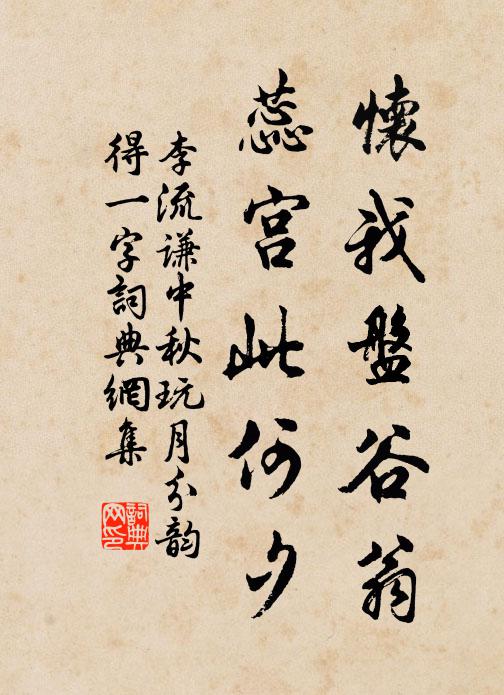 懷我盤谷翁
蕊宮此何夕
李流謙中秋玩月分韵
得一字詞典網集
詞典网印